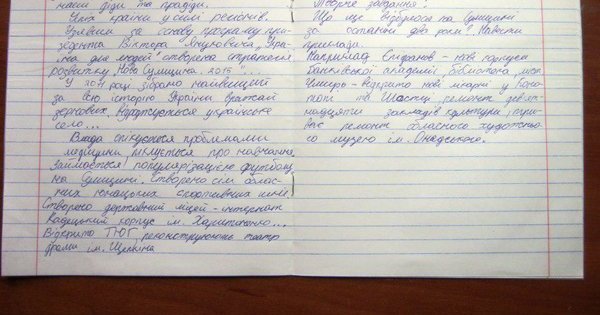 наши діди та прадіди.
Узявши за основу програму пре-
зидента Віктора Януковича „Украї-
на для людей" створена стратегія
розвитку „Нова Сумщина – 2015"...
У 2011 році зібрано найвищий
за всю історію України врожай
зернових, відроджується українське
село...
Влада опікується проблемами
медицини, піклується про навчання.
Займається популяризацією футболу
на Сумщині. Створено сім облас-
них юнацьких спортивних шкіл.
Створено державний ліцей-інтернат
Кадетський корпус ім. Харитоненко...
Відкрито ТЮГ, реконструюють театр
драми ім. Щепкіна
Творче завдання!
Що ще відбулося на Сумщині
за останні два роки? Навести
приклади.
Наприклад, Єпіфанов – нові корпуси
банківської академії, бібліотека,
– відкрито нові лікарні у Коно-
топі та Шостці, ремонт девят-
надцяти закладів культури, трив-
ає ремонт обласного художньо-
го музею ім. Онацького.